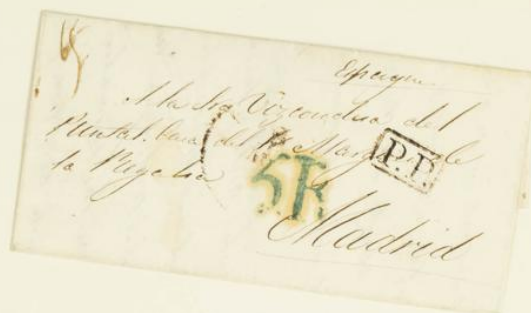 Espagne
A la Sra Vizcondesa del
Puntal. Casa del Sr Marques de
la Regalia
P.P.
5R
Madrid